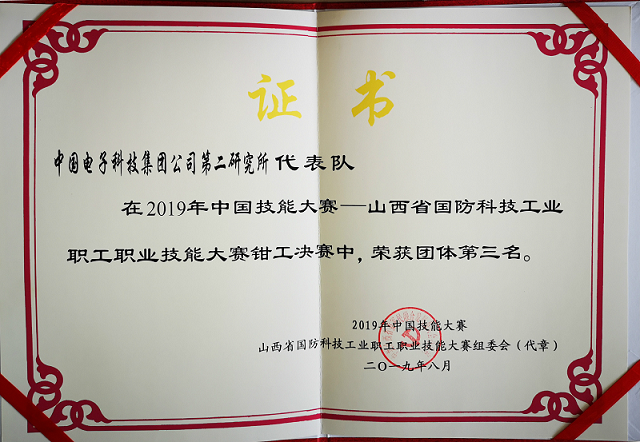 证书
中国电子科技集团公司第二研究所代表队
在2019年中国技能大赛—山西省国防科技工业
职工职业技能大赛钳工决赛中，荣获团体第三名。
2019年中国技能大赛
山西省国防科技工业职工职业技能大赛组委会（代章）
二〇一九年八月